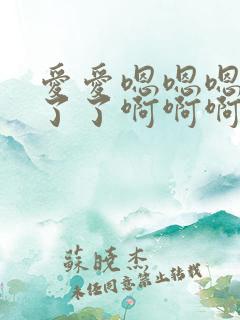 愛愛嗯嗯嗯
了了啊啊啊
蘇曉杰
未经同意禁止转载